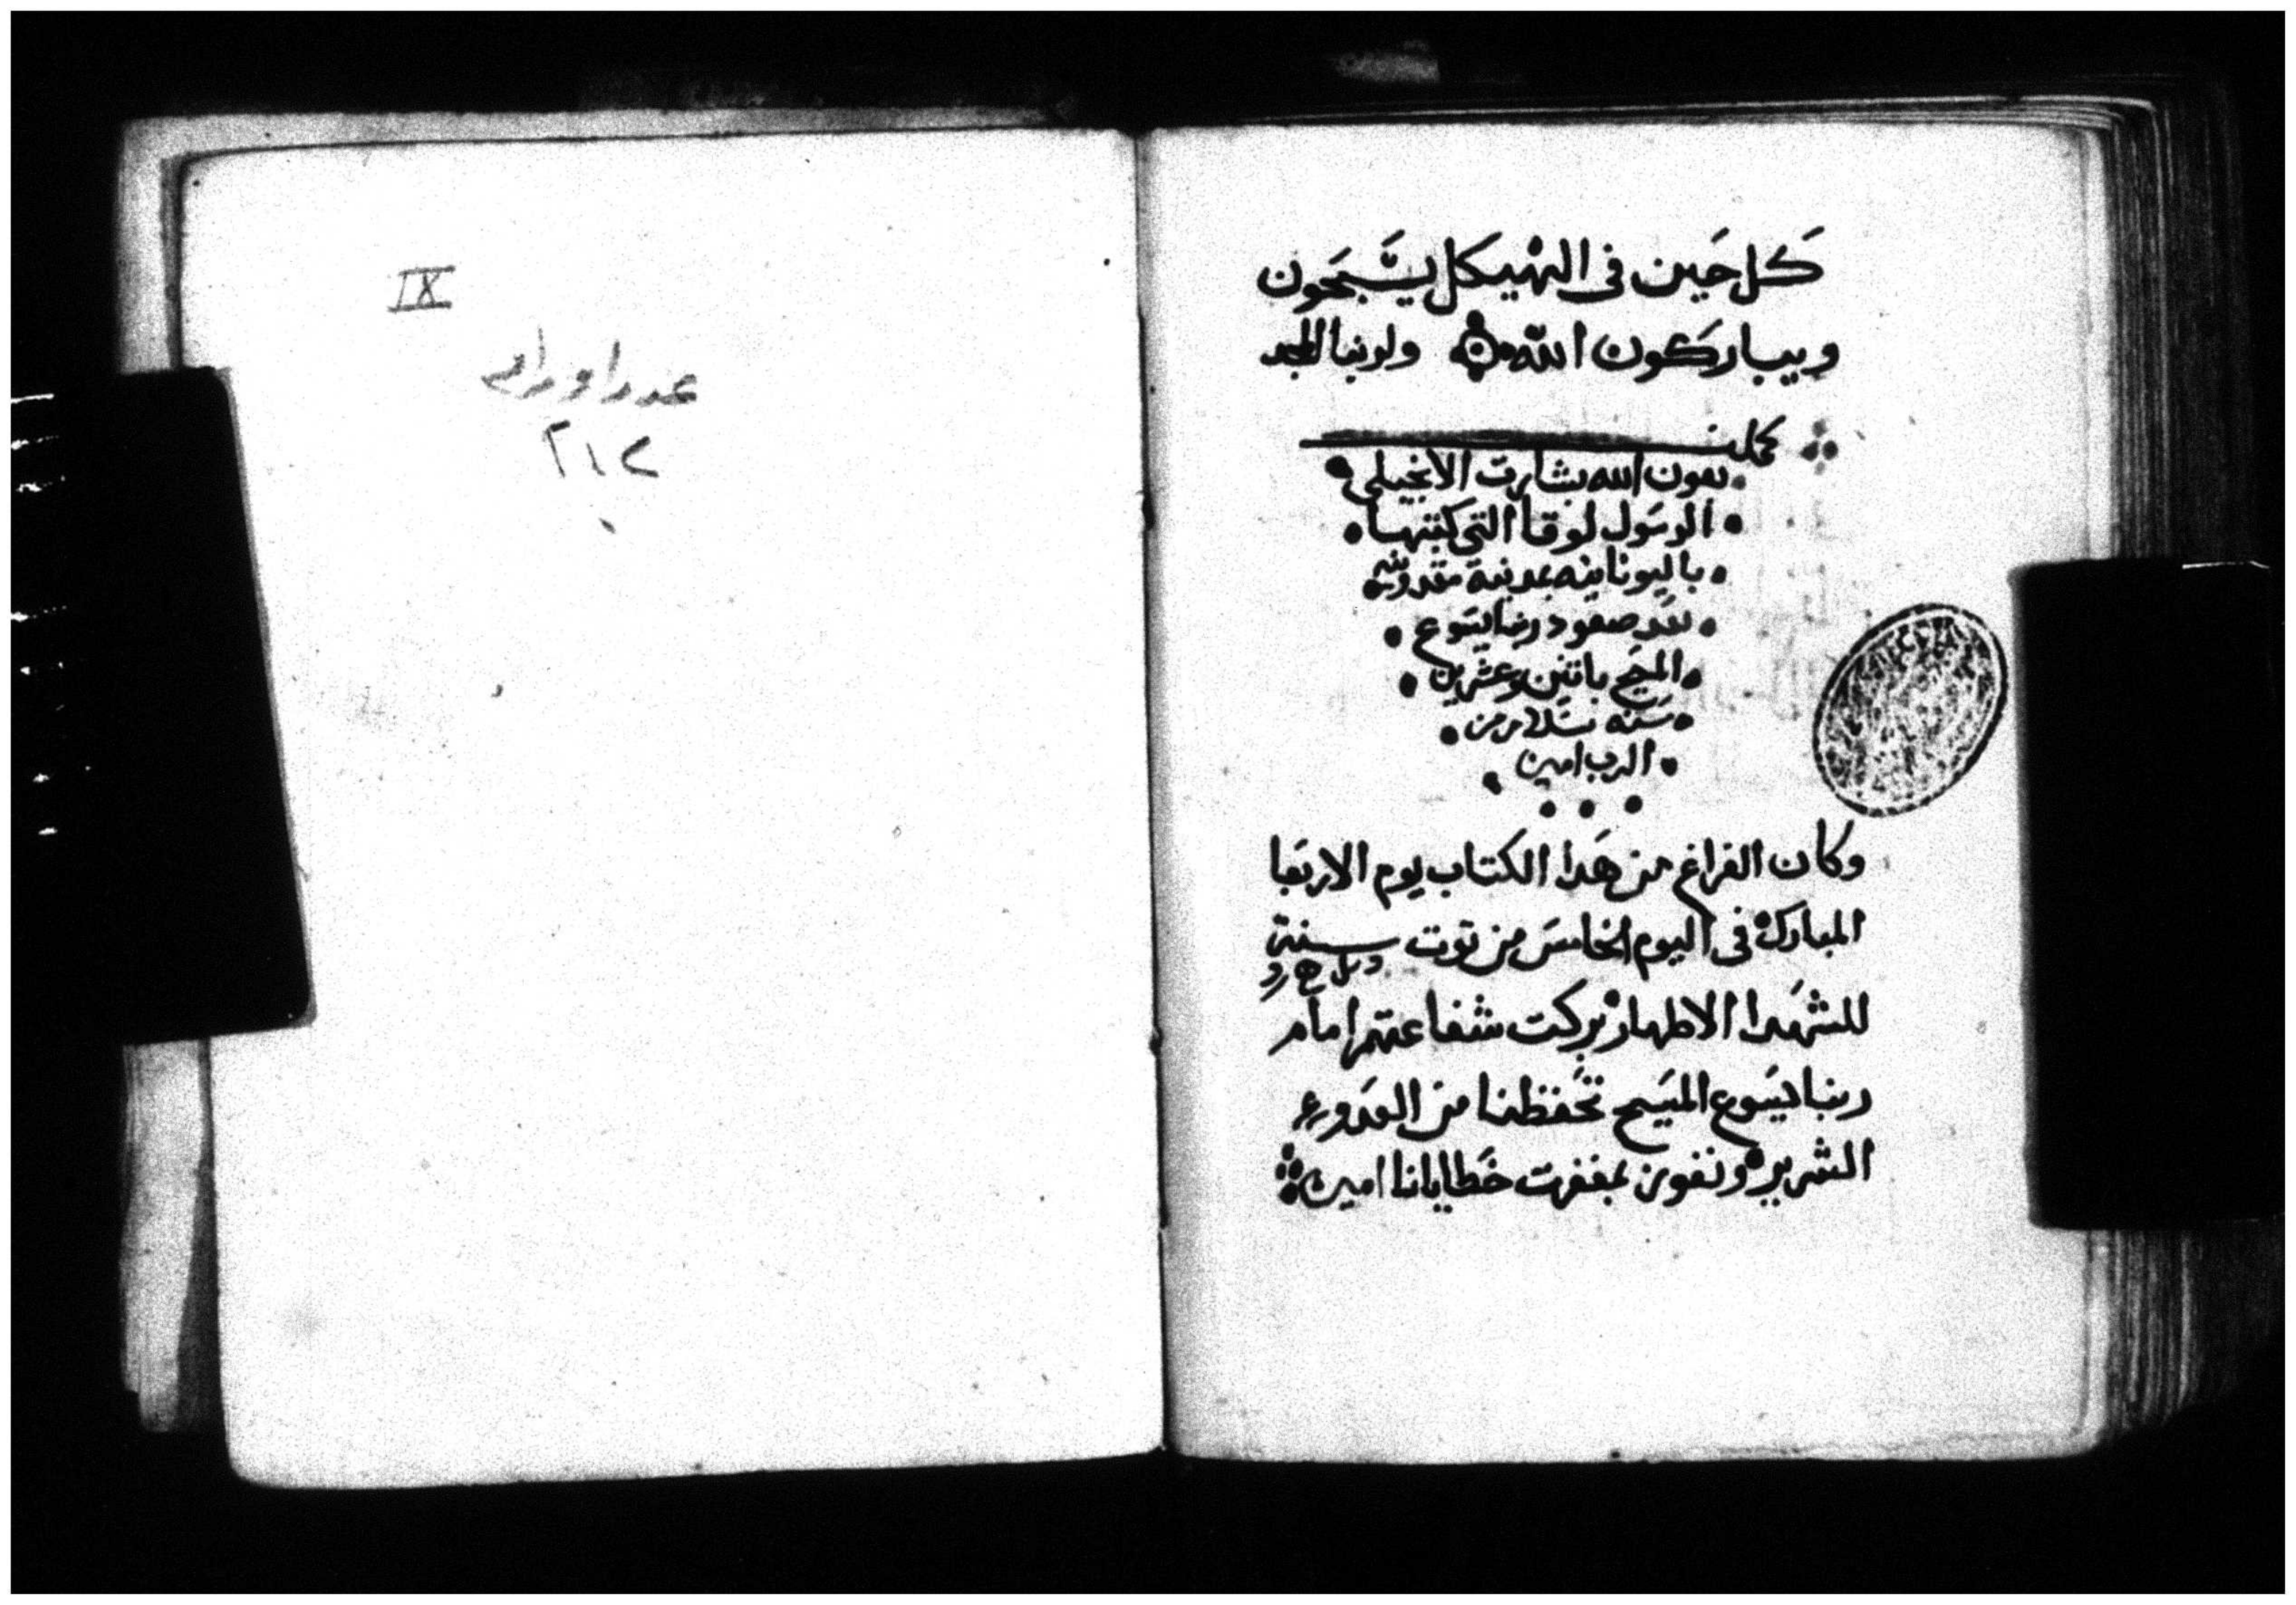 كل حين فى الهيكل يسبحون
ويباركون الله ولربنا المجد
كمل
بعون الله بشارت الانجيلى
الرسول لوقا التى كتبها
باليونانيه بمدينة مقدونيه
بعد صعود ربنا يسوع
المسيح باتنين وعشرين
سنه بسلام من
الرب امين
وكان الفراغ من هدا الكتاب يوم الاربعا
المبارك فى اليوم الخامس من توت سنة
للشهدا الاطهار بركت شفاعتهم امام
ربنا يسوع المسيح تحفظنا من العدو
الشرير ونفوز بمغفرت خطايانا امين
IX
عدد اوراق
٢١٢